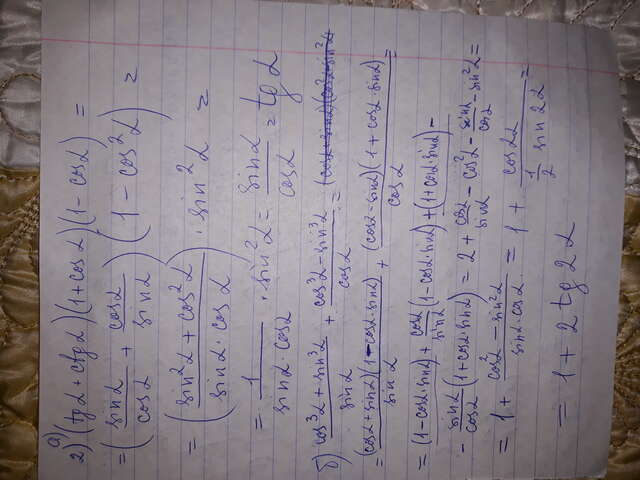 2) а) (tgα + ctgα)(1+cosα)(1-cosα) =
= (sinα/cosα + cosα/sinα)(1 - cos²α) =
= ((sin²α + cos²α)/(sinα·cosα)) · sin²α =
= 1/(sinα·cosα) · sin²α = sinα/cosα = tgα
б) (cos³α + sin³α)/sinα + (cos³α - sin³α)/cosα =
= (cosα+sinα)(1-cosα·sinα)/sinα + (cosα-sinα)(1+cosα·sinα)/cosα =
= (1-cosα·sinα) + cosα/sinα (1-cosα·sinα) + (1+cosα·sinα) -
- sinα/cosα (1+cosα·sinα) = 2 + cosα/sinα - cos²α - sinα/cosα - sin²α =
= 1 + (cos²α - sin²α)/(sinα·cosα) = 1 + cos2α/(1/2 sin2α) =
= 1 + 2tg2α